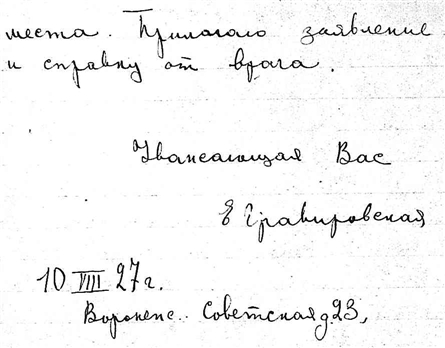 места. Прилагаю заявление
и справку от врача.
Уважающая Вас
Е Гравировская
10 VIII 27 г.
Воронеж.. Советская д. 23,